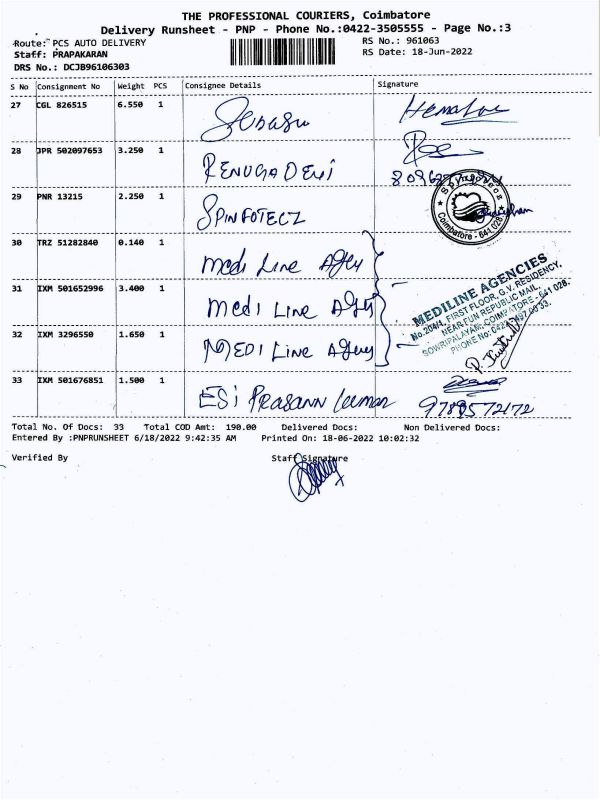 THE PROFESSIONAL COURIERS, Coimbatore
Delivery Runsheet - PNP - Phone No.:0422-3505555 - Page No.:3
Route: PCS AUTO DELIVERY RS No.: 961063
Staff: PRAPAKARAN RS Date: 18-Jun-2022
DRS No.: DCJB96106303
S No Consignment No Weight PCS Consignee Details Signature
27 CGL 826515 6.550 1
28 JPR 502097653 3.250 1 RENUGA DEVI
29 PNR 13215 2.250 1 SPINFOTECZ
Coimbatore - 641 028
30 TRZ 51282840 0.140 1 Medi Line
31 IXM 501652996 3.400 1 Medi Line
32 IXM 3296550 1.650 1 MEDI Line
MEDILINE AGENCIES
No.204/1, FIRST FLOOR, G.V. RESIDENCY,
NEAR FUN REPUBLIC MAIL,
SOWRIPALAYAM, COIMBATORE - 641 028.
33 IXM 501676851 1.500 1 ESI Prasann 9789572172
Total No. Of Docs: 33 Total COD Amt: 190.00 Delivered Docs: Non Delivered Docs:
Entered By :PNPRUNSHEET 6/18/2022 9:42:35 AM Printed On: 18-06-2022 10:02:32
Verified By Staff Signature